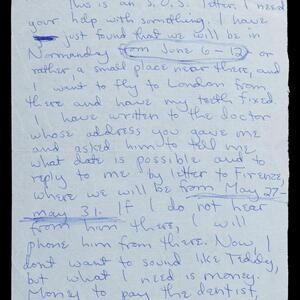 This is an S.O.S. letter. I need
your help with something. I have
just found that we will be in
Normandey from June 6-12 or
rather a small place near there, and
I want to fly to London from
there and have my teeth fixed.
I have written to the doctor
whose address you gave me
and asked him to tell me
what date is possible and to
reply to me by letter to Firenze,
where we will be from May 27-
may 31. If I do not hear
from him there, I will
phone him from there. Now, I
dont want to sound like Teddy,
but what I need is money.
Money to pay the dentist.